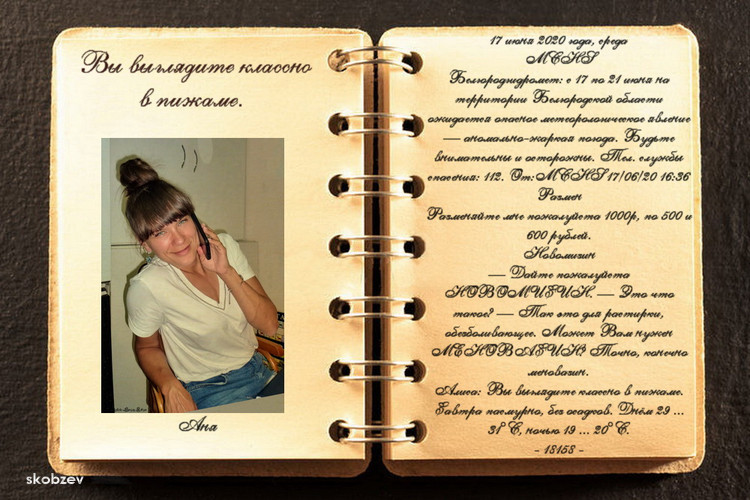 Вы выглядите классно
в пижаме.
Аня
17 июня 2020 года, среда
МЕНS
Белгородгидромет: с 17 по 21 июня на
территории Белгородской области
ожидается опасное метеорологическое явление
— аномально-жаркая погода. Будьте
внимательны и осторожны. Тел. службы
спасения: 112. От: МЕНS 17/06/20 16:36
Размен
Разменяйте мне пожалуйста 1000р, по 500 и
600 рублей.
Новомигин
— Дайте пожалуйста
НОВОМИГИН. — Это что
такое? — Так это для растирки,
обезболивающее. Может Вам нужен
МЕНОВАГИН? Точно, конечно
меновазин.
Алиса: Вы выглядите классно в пижаме.
Завтра пасмурно, без осадков. Днём 29 ...
31° С, ночью 19 ... 20° С.
- 18158 -
skobzev